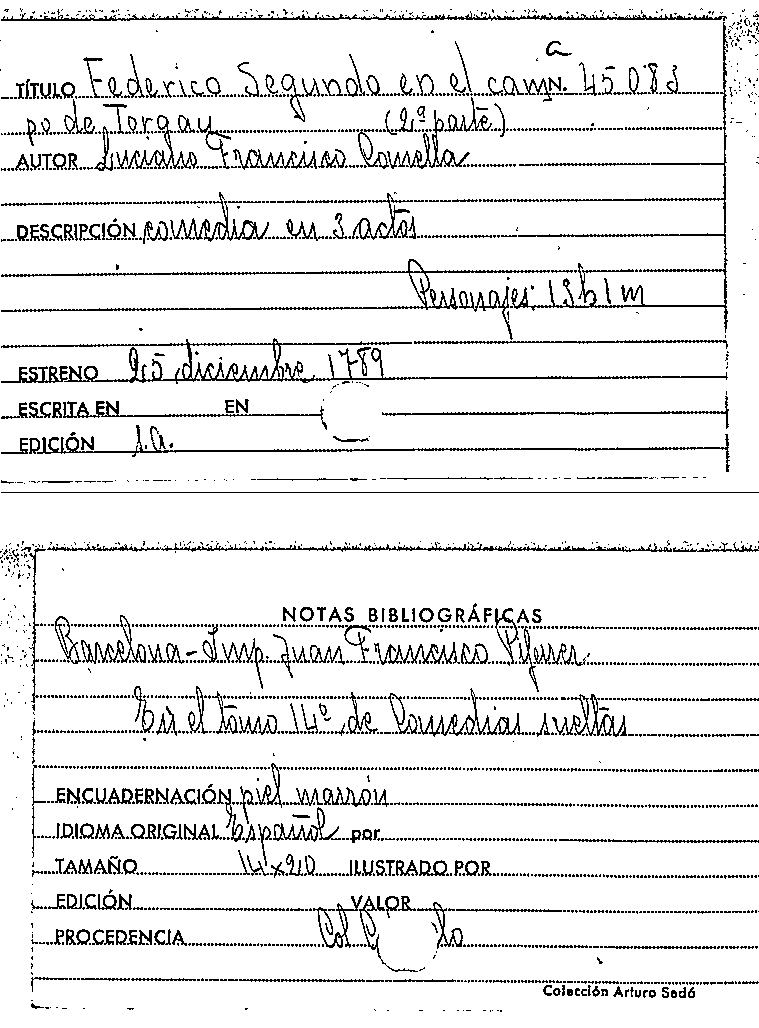 a
TÍTULO Federico Segundo en el cam N. 45083
po de Torgau (2ª parte)
AUTOR Luciano Francisco Comella
DESCRIPCIÓN comedia en 3 actos
Personajes: 13h 1m
ESTRENO 25 diciembre 1789
ESCRITA EN EN
EDICIÓN s.a.
NOTAS BIBLIOGRÁFICAS
Barcelona - Imp. Juan Francisco Piferrer
En el tomo 14º de Comedias sueltas
ENCUADERNACIÓN piel marrón
IDIOMA ORIGINAL Español por
TAMAÑO 14x20 ILUSTRADO POR
EDICIÓN VALOR
PROCEDENCIA Col
Colección Arturo Sedó